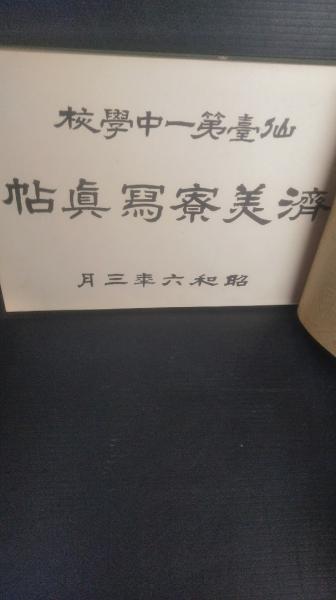 仙臺第一中學校
濟美寮寫眞帖
昭和六年三月